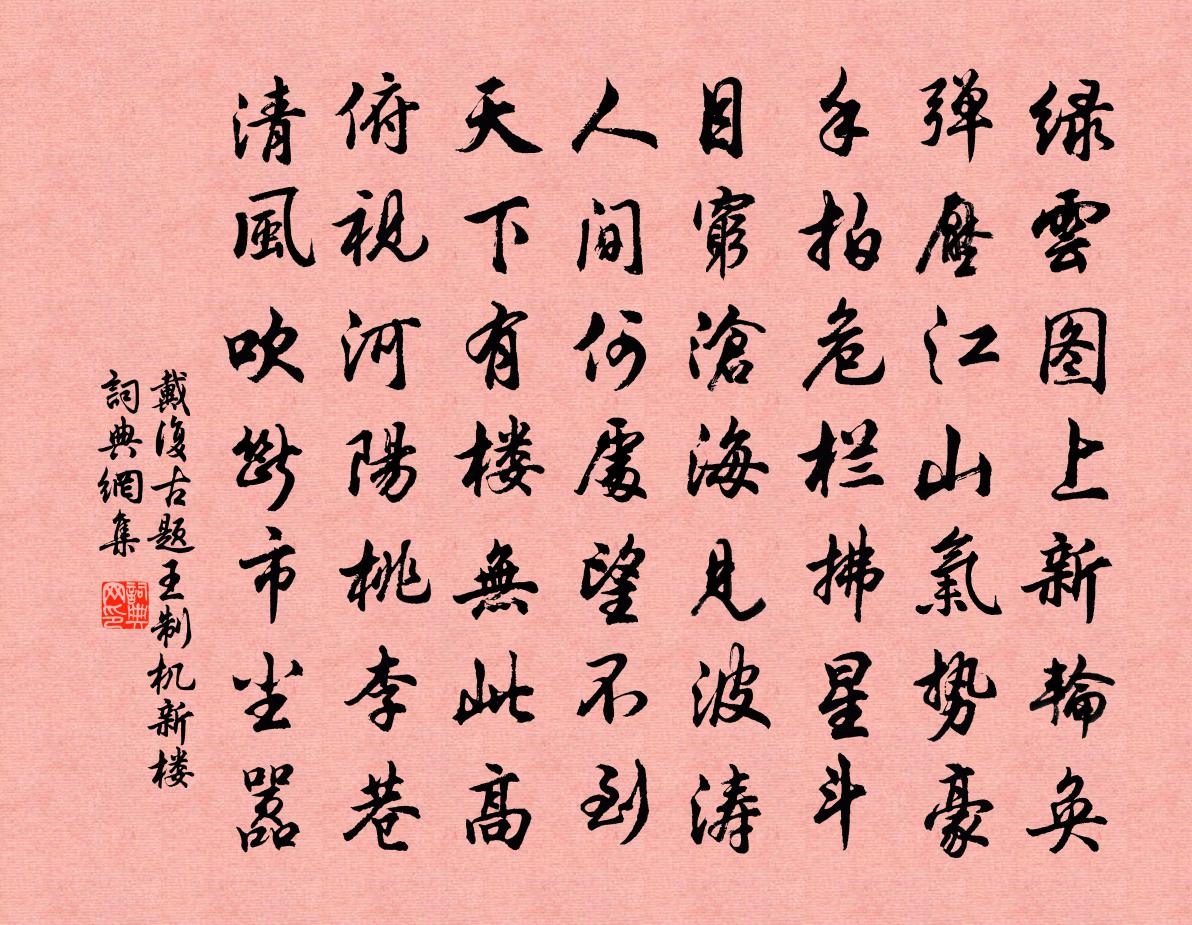 绿雲图上新輪奂
弹壓江山氣势豪
手拍危栏拂星斗
目窮滄海見波涛
人间何處望不到
天下有楼無此高
俯视河陽桃李巷
清風吹断市尘嚣
戴復古题王制机新楼
詞典網集
詞典网印